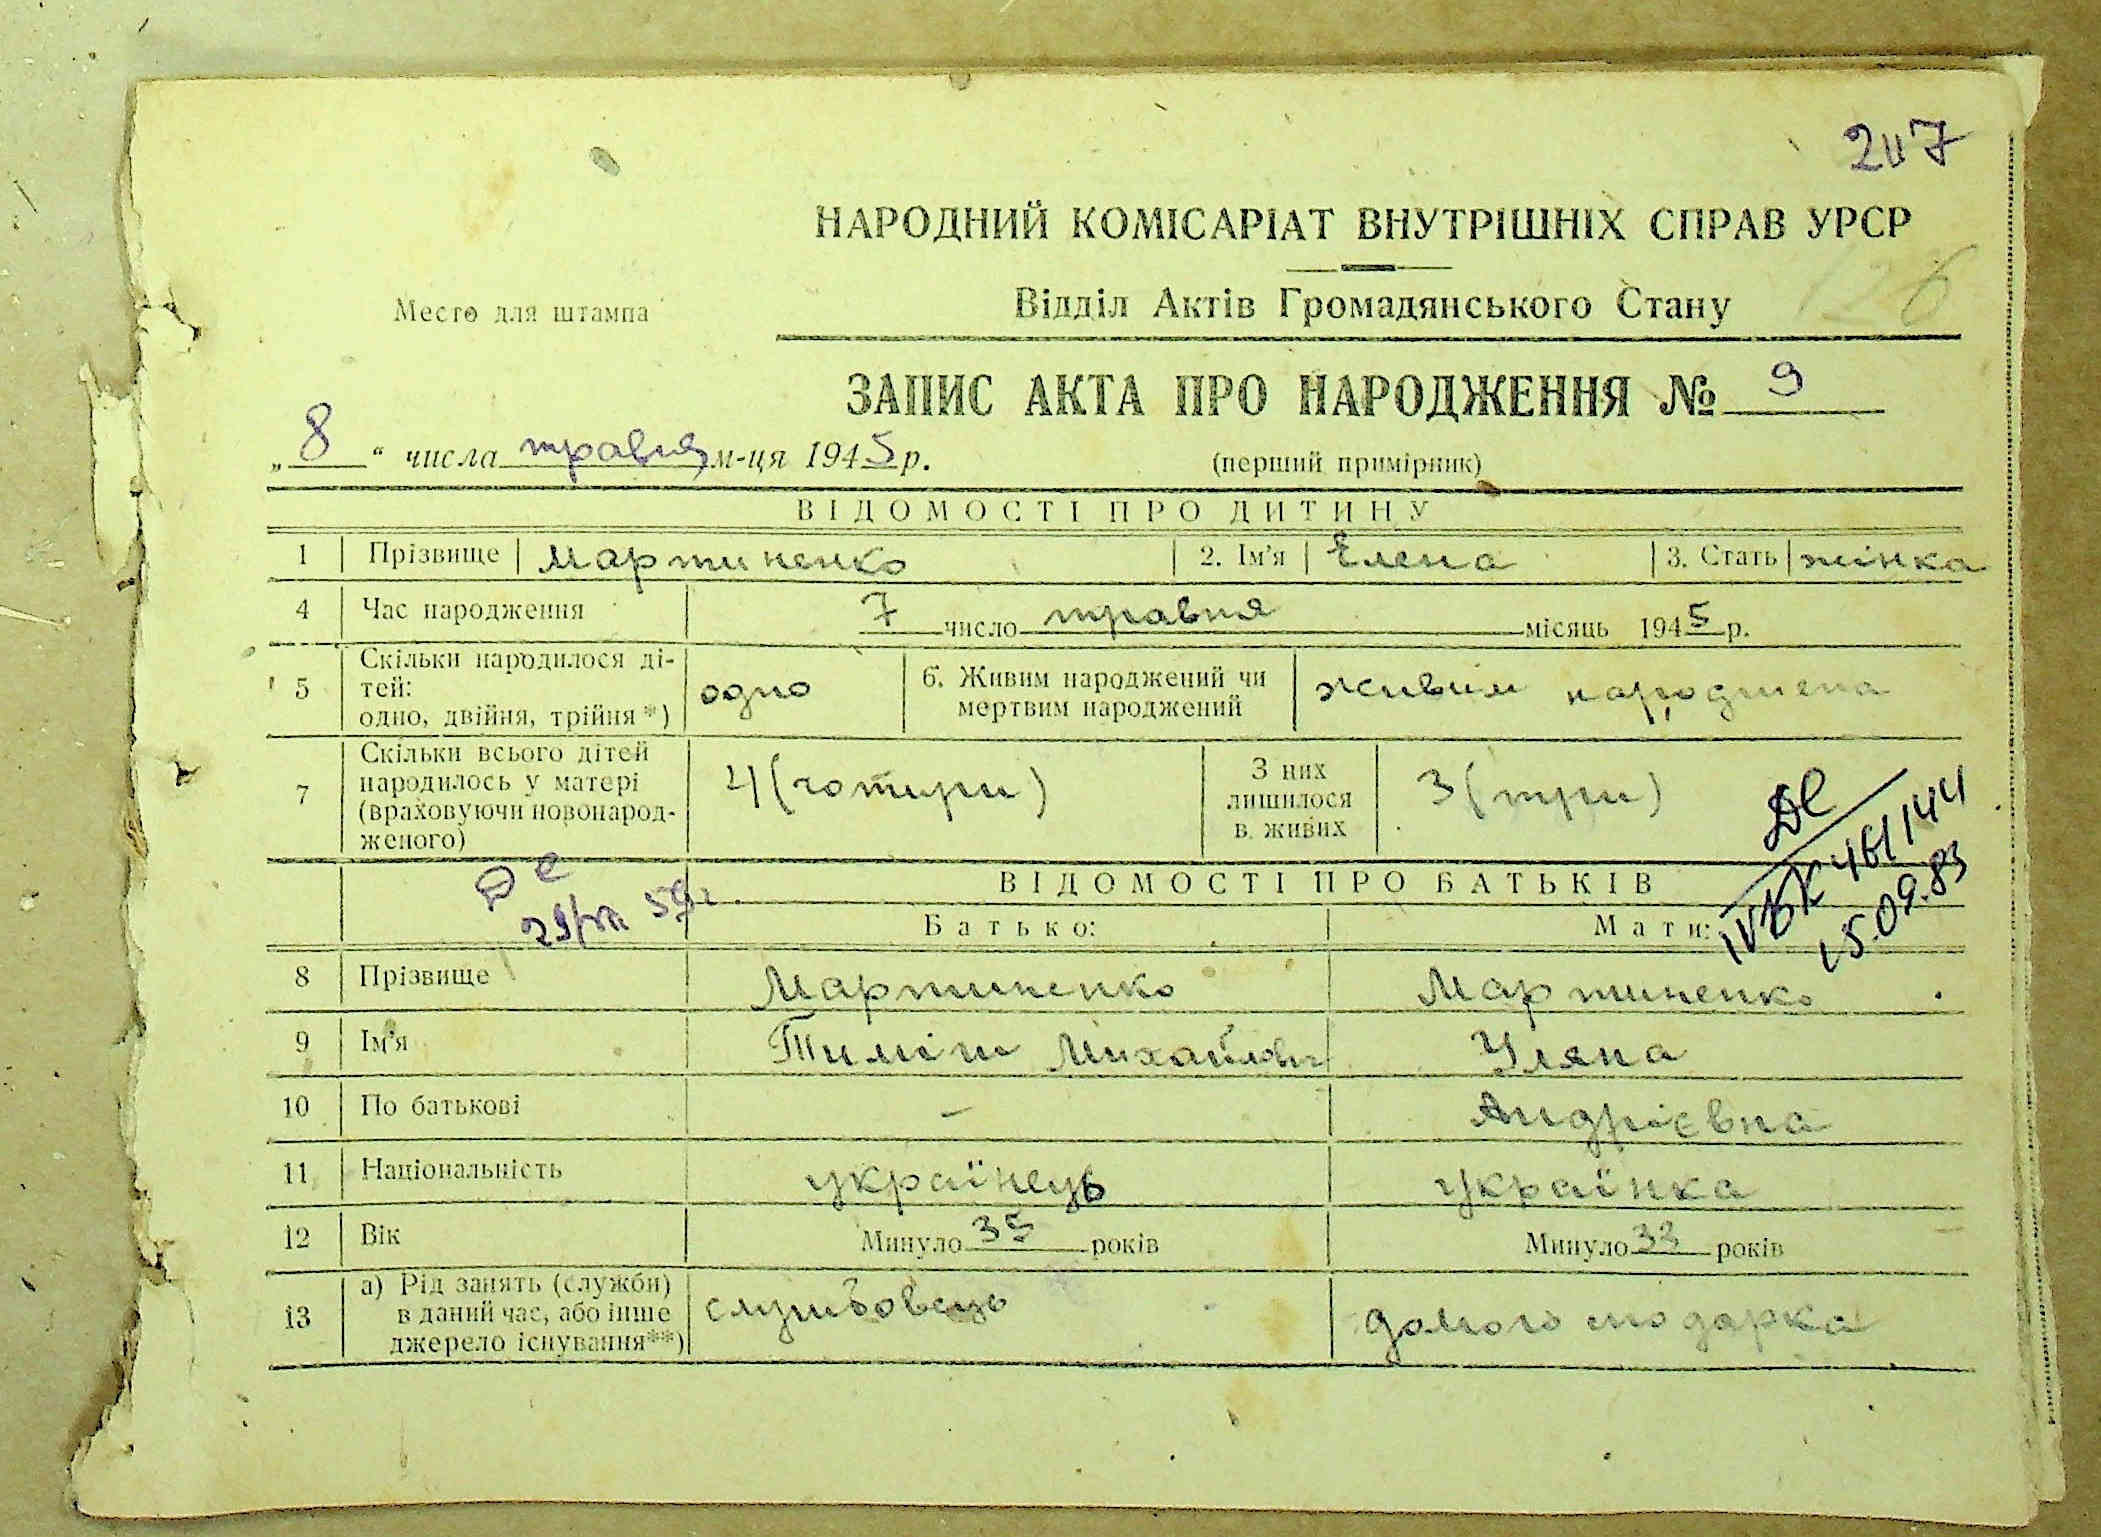 207
НАРОДНИЙ КОМІСАРІАТ ВНУТРІШНІХ СПРАВ УРСР
126
Место для штампа
Відділ Актів Громадянського Стану
ЗАПИС АКТА ПРО НАРОДЖЕННЯ № 9
„8“ числа травня м-ця 1945 р.
(перший примірник)
ВІДОМОСТІ ПРО ДИТИНУ
1 Прізвище Мартиненко 2. Ім'я Елена 3. Стать жінка
4 Час народження 7 число травня місяць 1945 р.
5 Скільки народилося ді-
тей:
одно, двійня, трійня*) одно 6. Живим народжений чи
мертвим народжений живим народжена
7 Скільки всього дітей
народилось у матері
(враховуючи новонарод-
женого) 4 (чотири) З них
лишилося
в живих 3 (три)
ДС
IVБК 461144
15.09.83
ВІДОМОСТІ ПРО БАТЬКІВ
Батько: Мати:
8 Прізвище Мартиненко Мартиненко
9 Ім'я Тиміш Михайлович Уляна
10 По батькові – Андрієвна
11 Національність українець українка
12 Вік Минуло 35 років Минуло 33 років
13 а) Рід занять (служби)
в даний час, або інше
джерело існування**) службовець домогосподарка